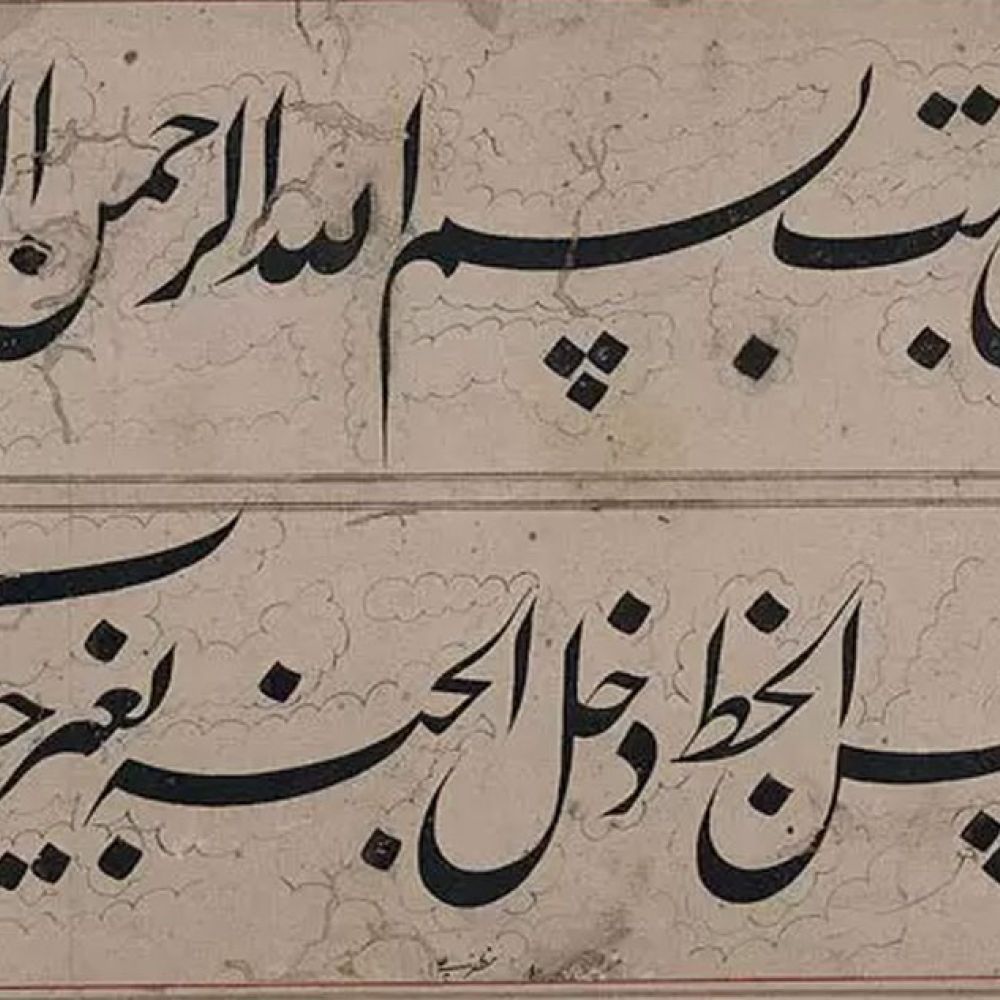 كتب بسم الله الرحمن ال
بحسن الخط دخل الجنة بغير